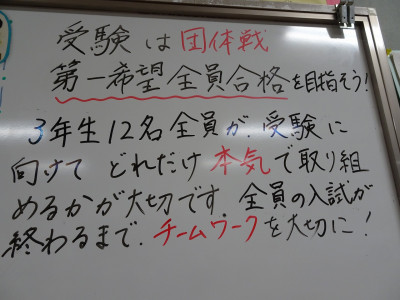 受験は団体戦
第一希望全員合格を目指そう!
3年生12名全員が、受験に
向けて どれだけ本気で取り組
めるかが大切です。全員の入試が
終わるまで、チームワークを大切に!